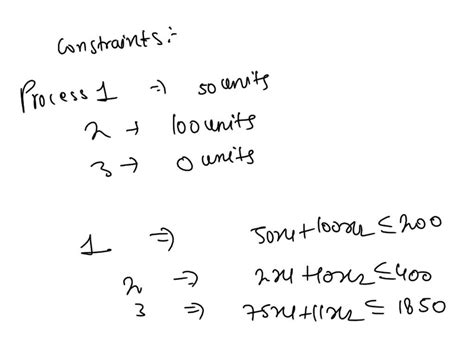 Constraints:-
Process 1 => 50 units
2 → 100 units
3 → 0 units
1 => 50x1+100x2 ≤ 200
2 => 2x1+10x2 ≤ 400
3 => 75x1+11x2 ≤ 1850